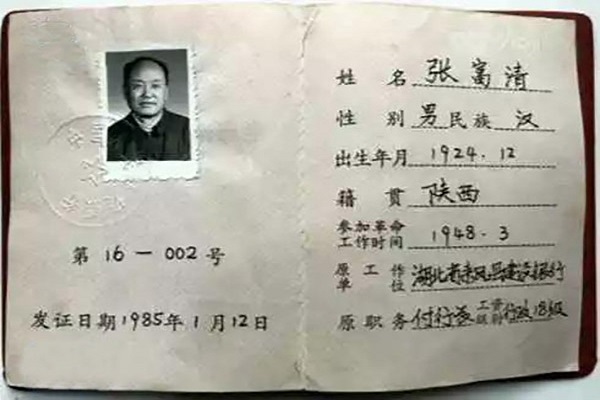 第 16-002 号
发证日期 1985 年 1 月 12 日
姓名 张富清
性别 男 民族 汉
出生年月 1924.12
籍贯 陕西
参加革命工作时间 1948.3
原工作单位 湖北省来凤县建设银行
原职务 付行长 工资级别 行政18级